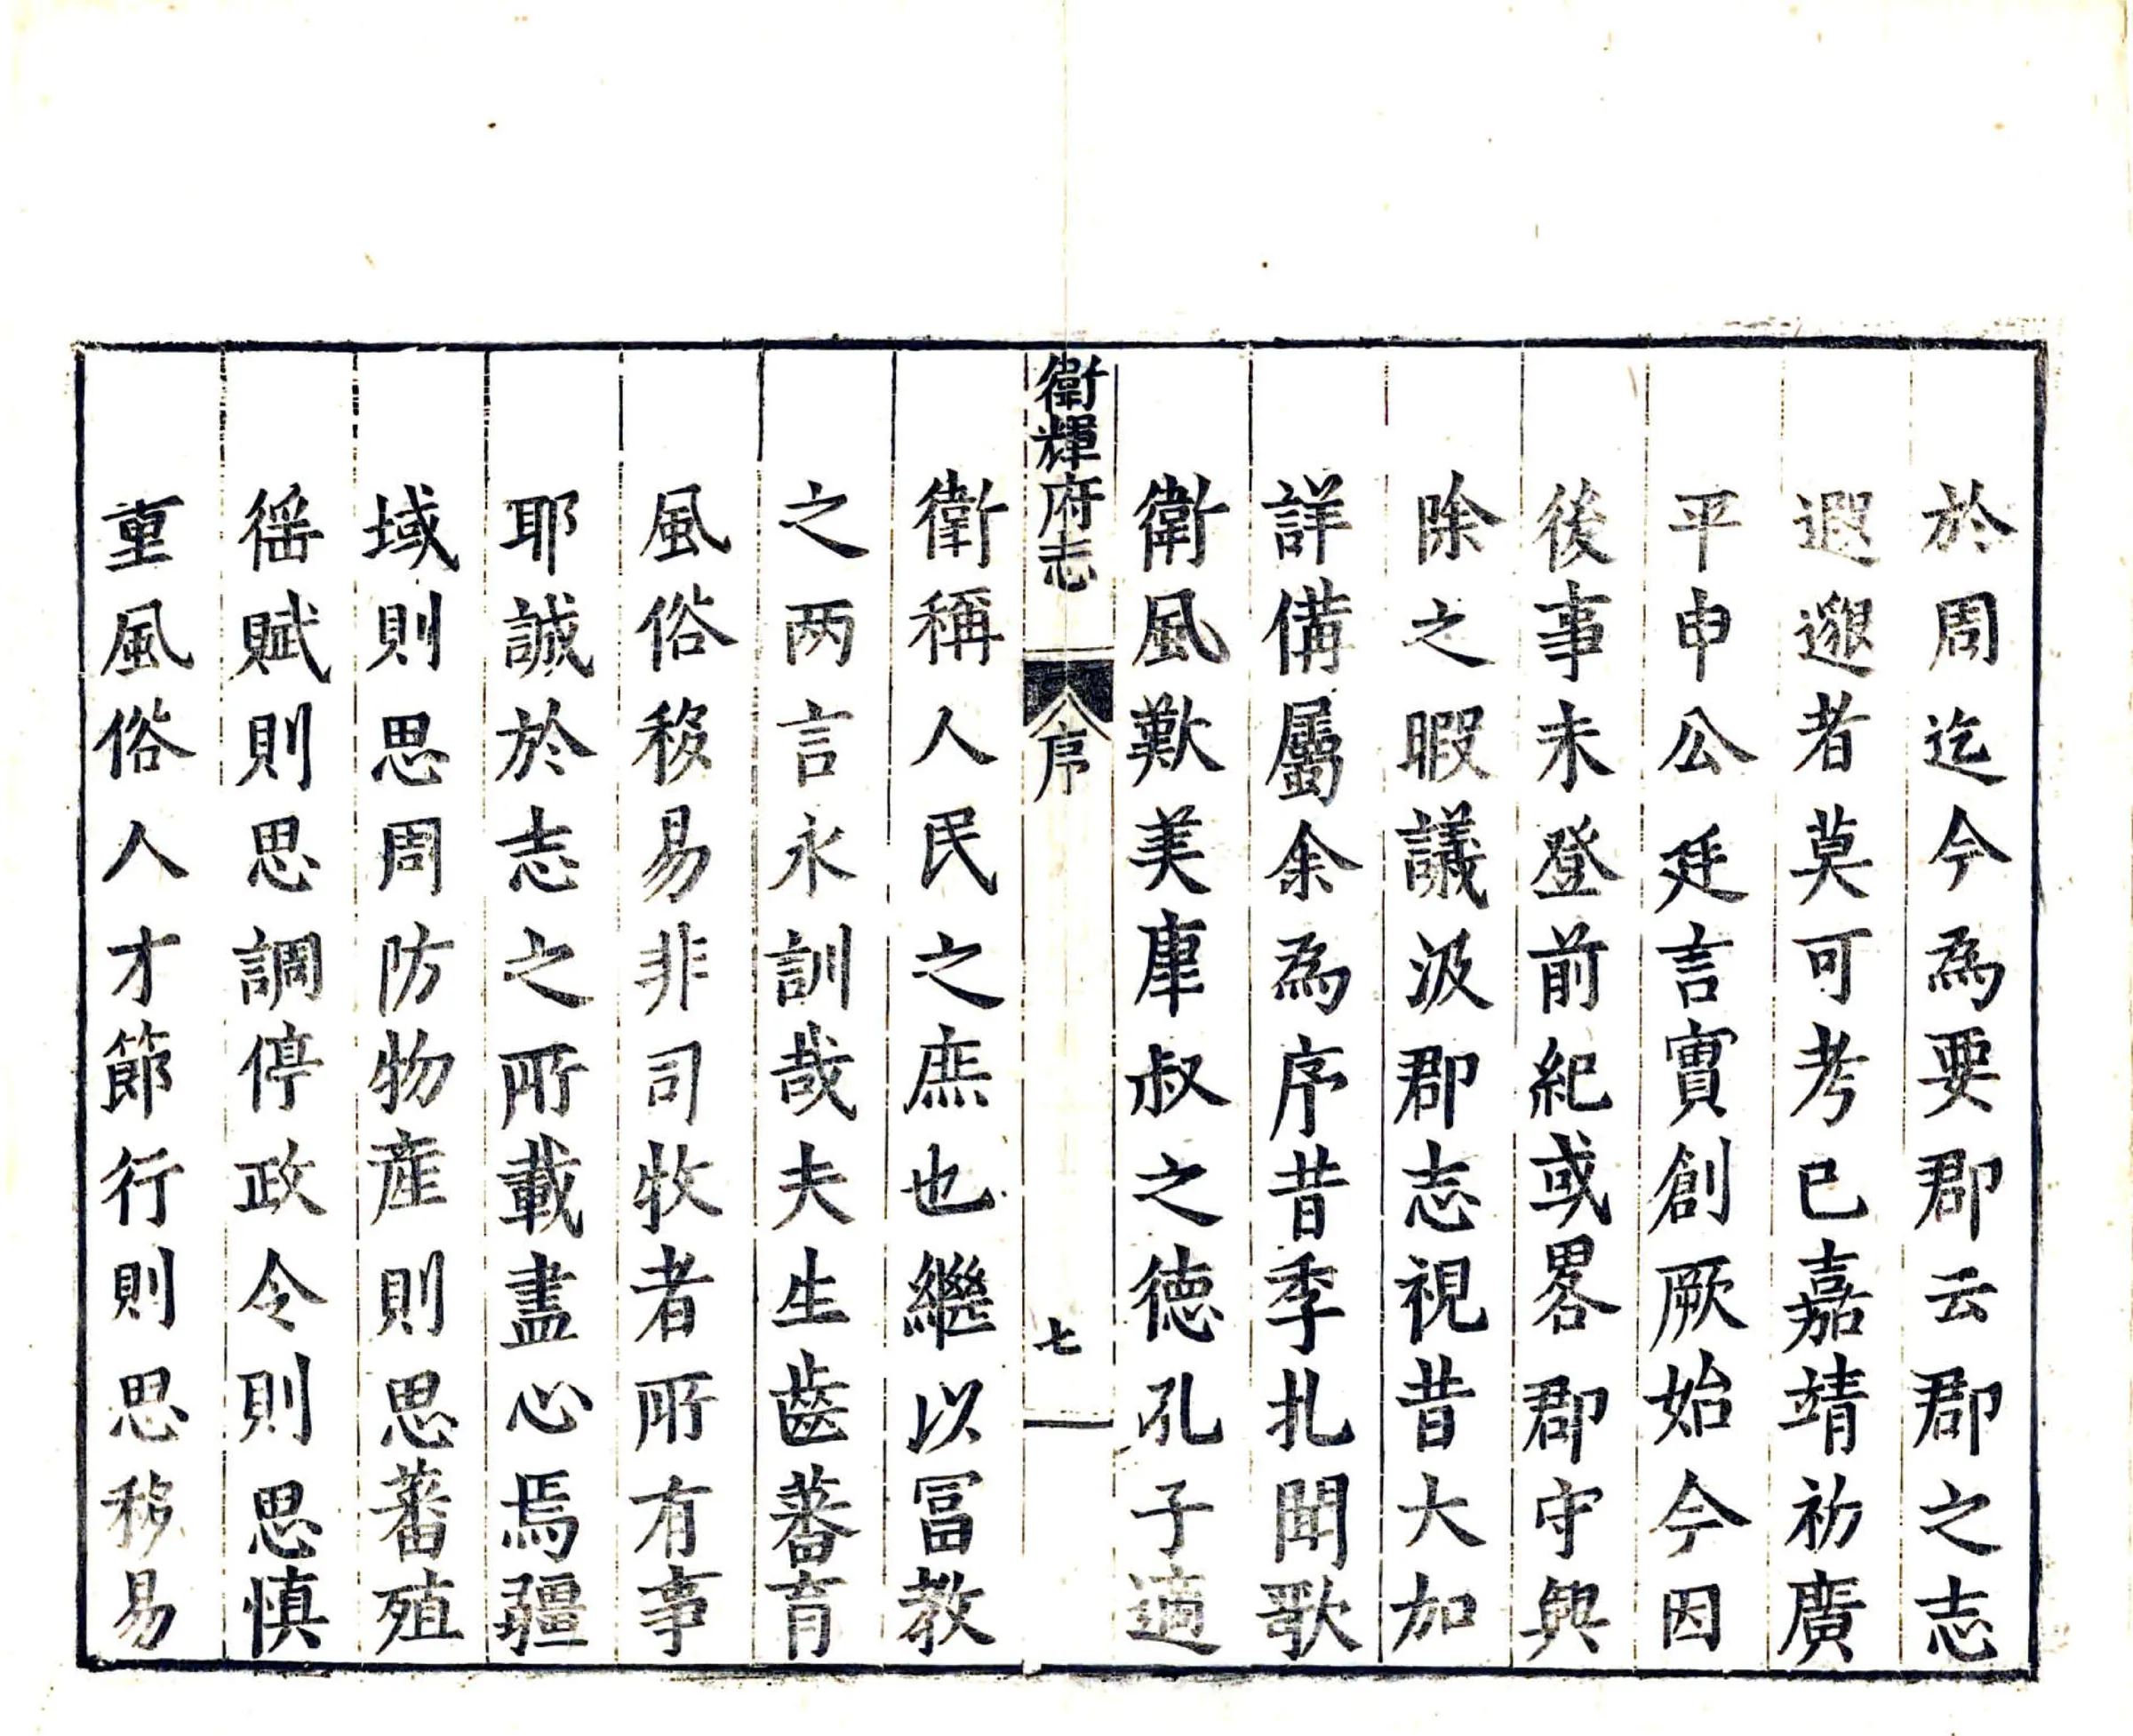 於周迄今為要郡云郡之志
遐邈者莫可考已嘉靖初廣
平申公廷言實創厥始今因
後事未登前紀或畧郡守興
除之暇議汲郡志視昔大加
詳備屬余為序昔季札聞歌
衛風歎美康叔之德孔子適
衛輝府志 序 七
衛稱人民之庶也繼以冨教
之两言永訓哉夫生齒蕃育
風俗移易非司牧者所有事
耶誠於志之所載盡心焉疆
域則思周防物產則思蕃殖
徭賦則思調停政令則思慎
重風俗人才節行則思移易